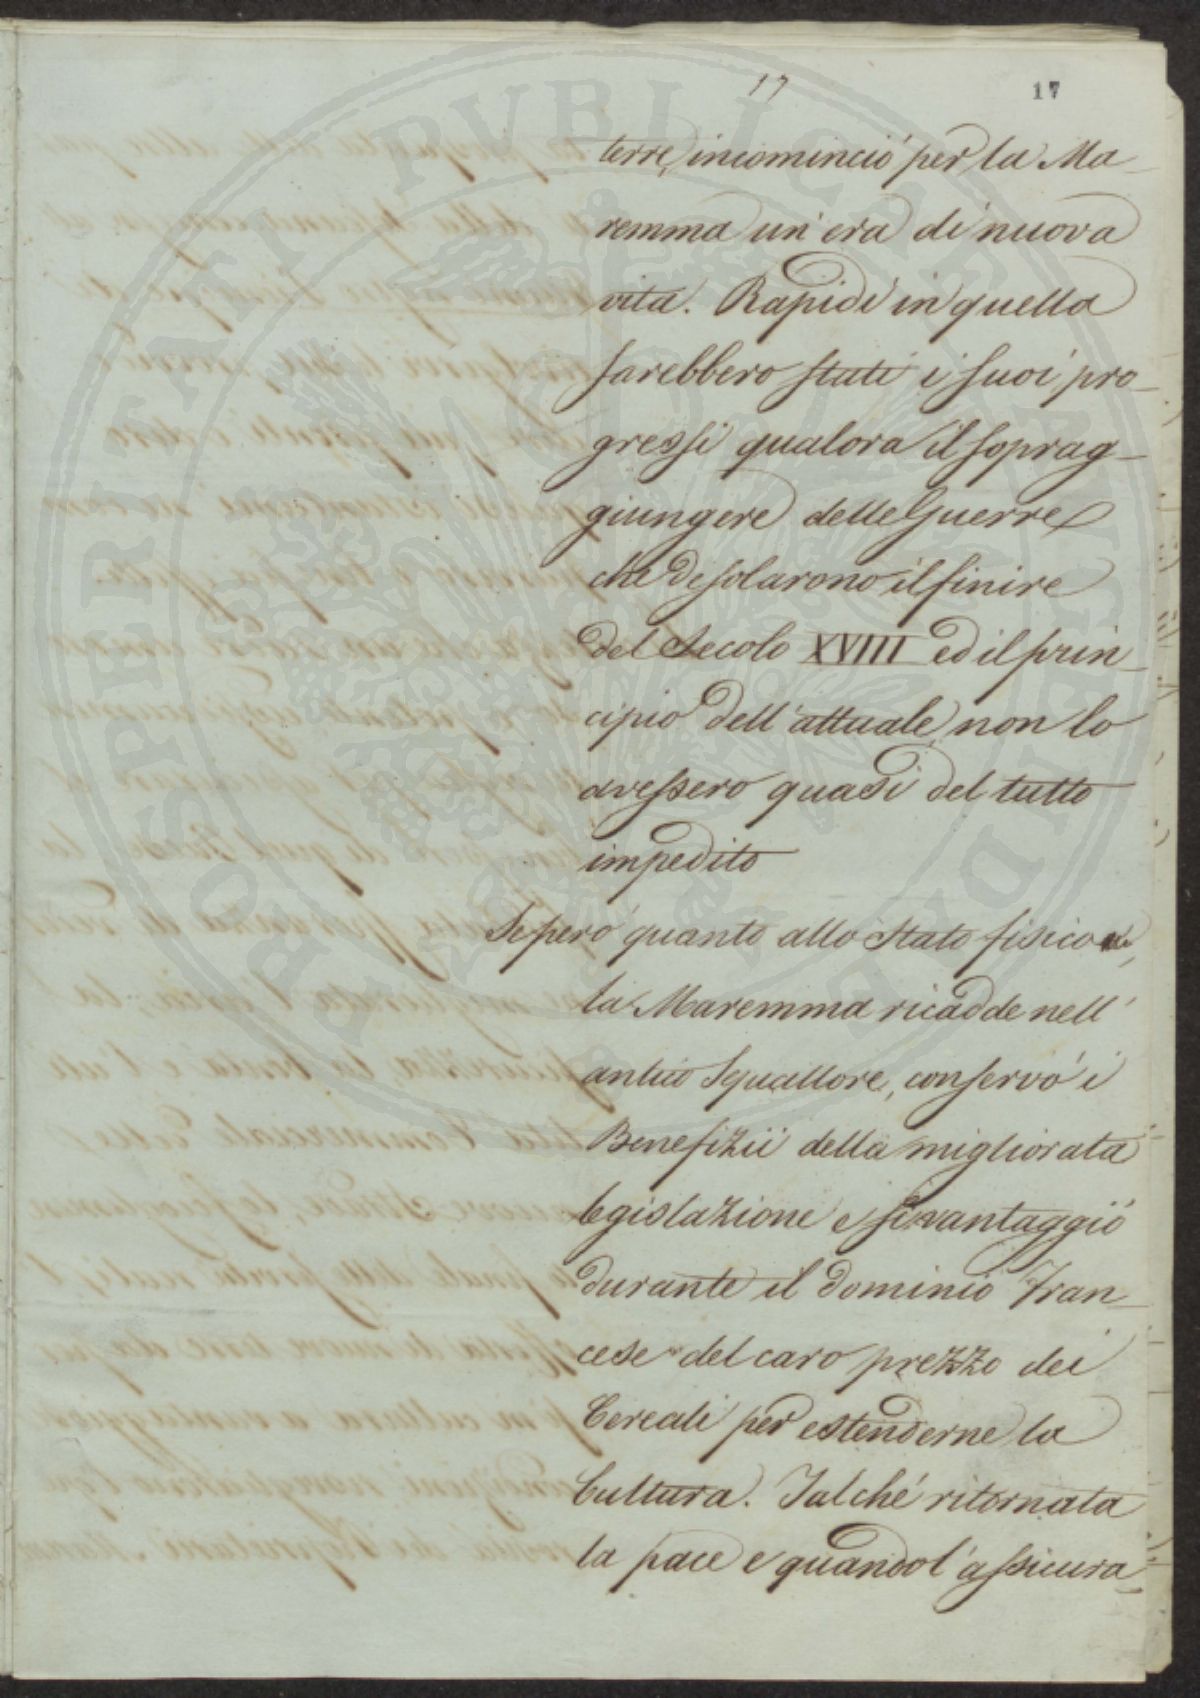 17
17
terre, incominciò per la Ma-
remma un'era di nuova
vita. Rapidi in quella
sarebbero stati i suoi pro-
gressi qualora il soprag-
giungere delle Guerre
che desolarono il finire
del Secolo XVIII ed il prin-
cipio dell'attuale, non lo
avessero quasi del tutto
impedito
Se però quanto allo Stato fisico
la Maremma ricadde nell'
antico Squallore, conservò i
Benefizii della migliorata
legislazione e si vantaggiò
durante il dominio Fran-
cese del caro prezzo dei
Cereali per estenderne la
Cultura. Talché ritornata
la pace e quando l'assicura-
PROSPERITATI PVBLICAE VINDICI DAE